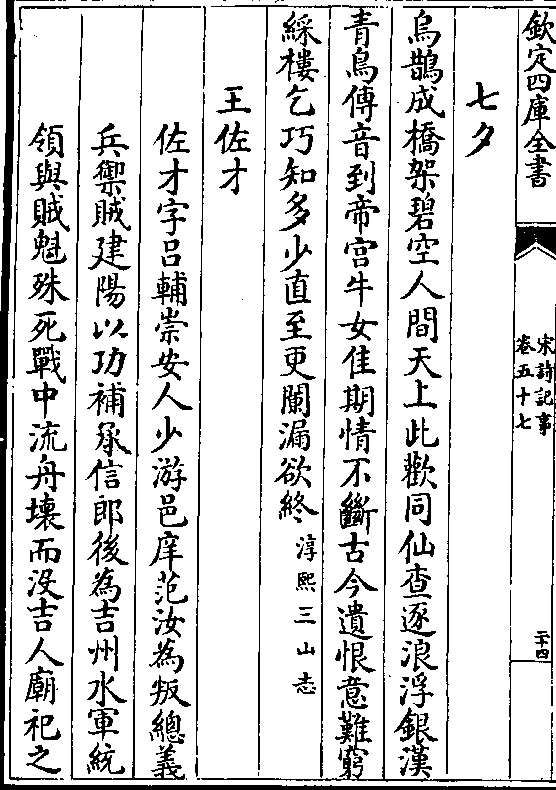 欽定四庫全書
宋詩記事
卷五十七
二十四
七夕
烏鵲成橋架碧空人間天上此歡同仙查逐浪浮銀漢
青鳥傳音到帝宮牛女佳期情不斷古今遺恨意難窮
綵樓乞巧知多少直至更闌漏欲終淳熙三山志
王佐才
佐才字呂輔崇安人少游邑庠范汝為叛總義
兵禦賊建陽以功補承信郎後為吉州水軍統
領與賊魁殊死戰中流舟壊而没吉人廟祀之